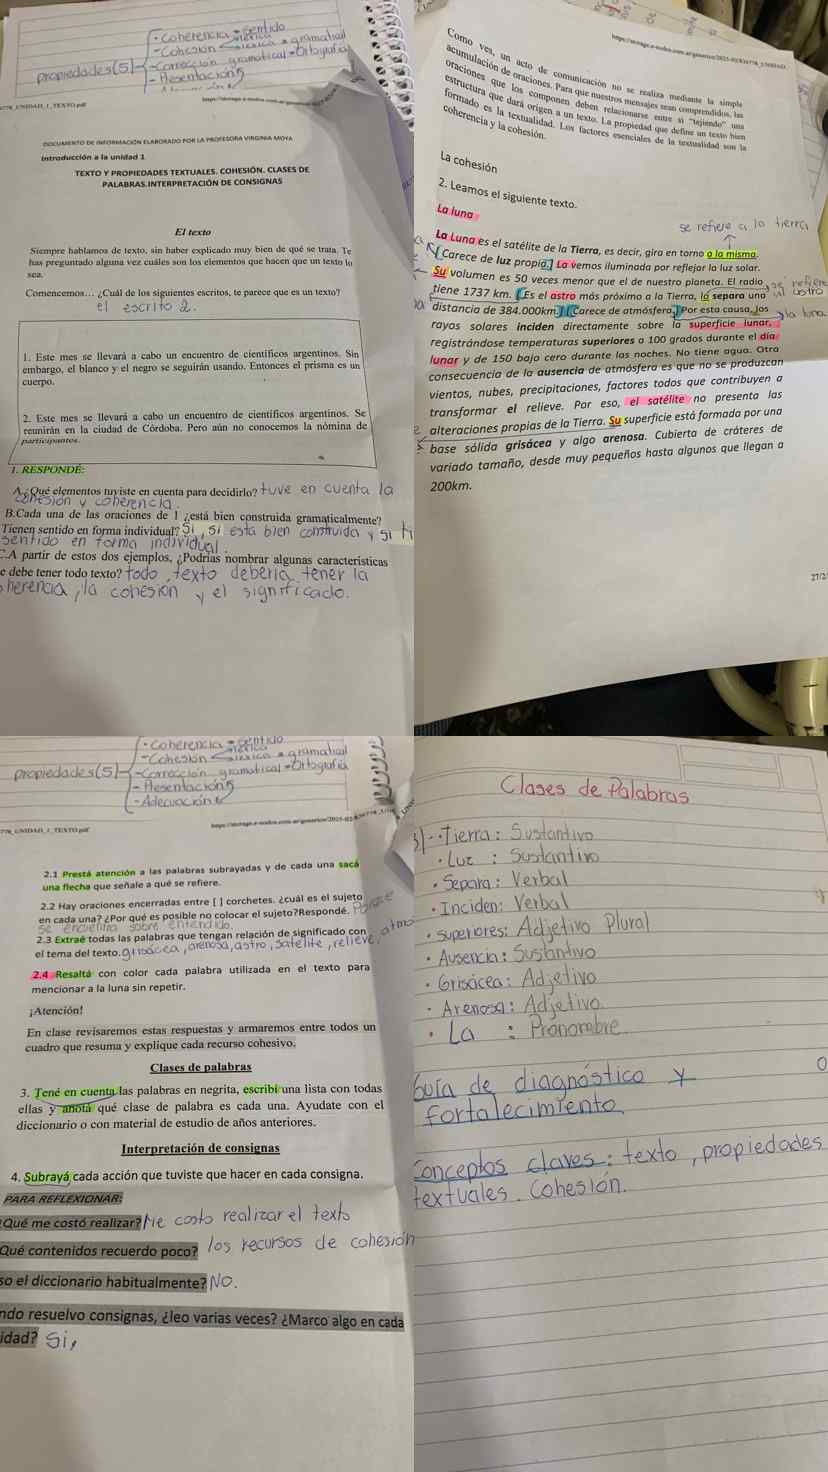 propiedades(5)
- Coherencia = sentido
- Cohesión léxica gramatical
- Corrección gramatical = Ortografía
- Presentación
778_UNIDAD_1_TEXTO.pdf
DOCUMENTO DE INFORMACIÓN ELABORADO POR LA PROFESORA VIRGINIA MOYA
Introducción a la unidad 1
TEXTO Y PROPIEDADES TEXTUALES. COHESIÓN. CLASES DE
PALABRAS.INTERPRETACIÓN DE CONSIGNAS
El texto
Siempre hablamos de texto, sin haber explicado muy bien de qué se trata. Te
has preguntado alguna vez cuáles son los elementos que hacen que un texto lo
sea.
Comencemos... ¿Cuál de los siguientes escritos, te parece que es un texto?
el escrito 2.
1. Este mes se llevará a cabo un encuentro de científicos argentinos. Sin
embargo, el blanco y el negro se seguirán usando. Entonces el prisma es un
cuerpo.
2. Este mes se llevará a cabo un encuentro de científicos argentinos. Se
reunirán en la ciudad de Córdoba. Pero aún no conocemos la nómina de
participantes.
1. RESPONDÉ:
A.¿Qué elementos tuviste en cuenta para decidirlo? tuve en cuenta la
cohesión y coherencia.
B.Cada una de las oraciones de 1 ¿está bien construida gramaticalmente?
Tienen sentido en forma individual? Si, si esta bien construida y si ti
sentido en forma individual.
C.A partir de estos dos ejemplos, ¿Podrías nombrar algunas características
e debe tener todo texto? todo texto deberia tener la
herencia, la cohesión y el significado.
Como ves, un acto de comunicación no se realiza mediante la simple
acumulación de oraciones. Para que nuestros mensajes sean comprendidos, las
oraciones que los componen deben relacionarse entre sí "tejiendo" una
estructura que dará origen a un texto. La propiedad que define un texto bien
formado es la textualidad. Los factores esenciales de la textualidad son la
coherencia y la cohesión.
La cohesión
2. Leamos el siguiente texto.
La luna
se refiere a la tierra
La Luna es el satélite de la Tierra, es decir, gira en torno a la misma.
[Carece de luz propia.] La vemos iluminada por reflejar la luz solar.
Su volumen es 50 veces menor que el de nuestro planeta. El radio
se refiere
al astro
tiene 1737 km. [Es el astro más próximo a la Tierra, lo separa una
distancia de 384.000km.] [Carece de atmósfera.] Por esta causa, los
la luna
rayos solares inciden directamente sobre la superficie lunar,
registrándose temperaturas superiores a 100 grados durante el día
lunar y de 150 bajo cero durante las noches. No tiene agua. Otra
consecuencia de la ausencia de atmósfera es que no se produzcan
vientos, nubes, precipitaciones, factores todos que contribuyen a
transformar el relieve. Por eso, el satélite no presenta las
alteraciones propias de la Tierra. Su superficie está formada por una
base sólida grisácea y algo arenosa. Cubierta de cráteres de
variado tamaño, desde muy pequeños hasta algunos que llegan a
200km.
27/2
propiedades(5)
- Coherencia = sentido
- Cohesión léxica gramatical
- Corrección gramatical = Ortografía
- Presentación
- Adecuación
778_UNIDAD_1_TEXTO.pdf
2.1 Prestá atención a las palabras subrayadas y de cada una sacá
una flecha que señale a qué se refiere.
2.2 Hay oraciones encerradas entre [ ] corchetes. ¿cuál es el sujeto
en cada una? ¿Por qué es posible no colocar el sujeto?Respondé. Porque
se encuentra sobre entendido.
2.3 Extraé todas las palabras que tengan relación de significado con
el tema del texto. grisácea, arenosa, astro, satelite, relieve, atmo
2.4 Resaltá con color cada palabra utilizada en el texto para
mencionar a la luna sin repetir.
¡Atención!
En clase revisaremos estas respuestas y armaremos entre todos un
cuadro que resuma y explique cada recurso cohesivo.
Clases de palabras
3. Tené en cuenta las palabras en negrita, escribí una lista con todas
ellas y anotá qué clase de palabra es cada una. Ayudate con el
diccionario o con material de estudio de años anteriores.
Interpretación de consignas
4. Subrayá cada acción que tuviste que hacer en cada consigna.
PARA REFLEXIONAR:
Qué me costó realizar? Me costo realizar el texto
Qué contenidos recuerdo poco? los recursos de cohesión
so el diccionario habitualmente? NO.
ndo resuelvo consignas, ¿leo varias veces? ¿Marco algo en cada
idad? Si,
Clases de Palabras
3) · Tierra: Sustantivo
· Luz : Sustantivo
· Separa: Verbal
· Inciden: Verbal
· Superiores: Adjetivo Plural
· Ausencia: Sustantivo
· Grisácea: Adjetivo
· Arenosa: Adjetivo.
· La : Pronombre
Guía de diagnóstico y
fortalecimiento
Conceptos claves: texto, propiedades
textuales. Cohesión.